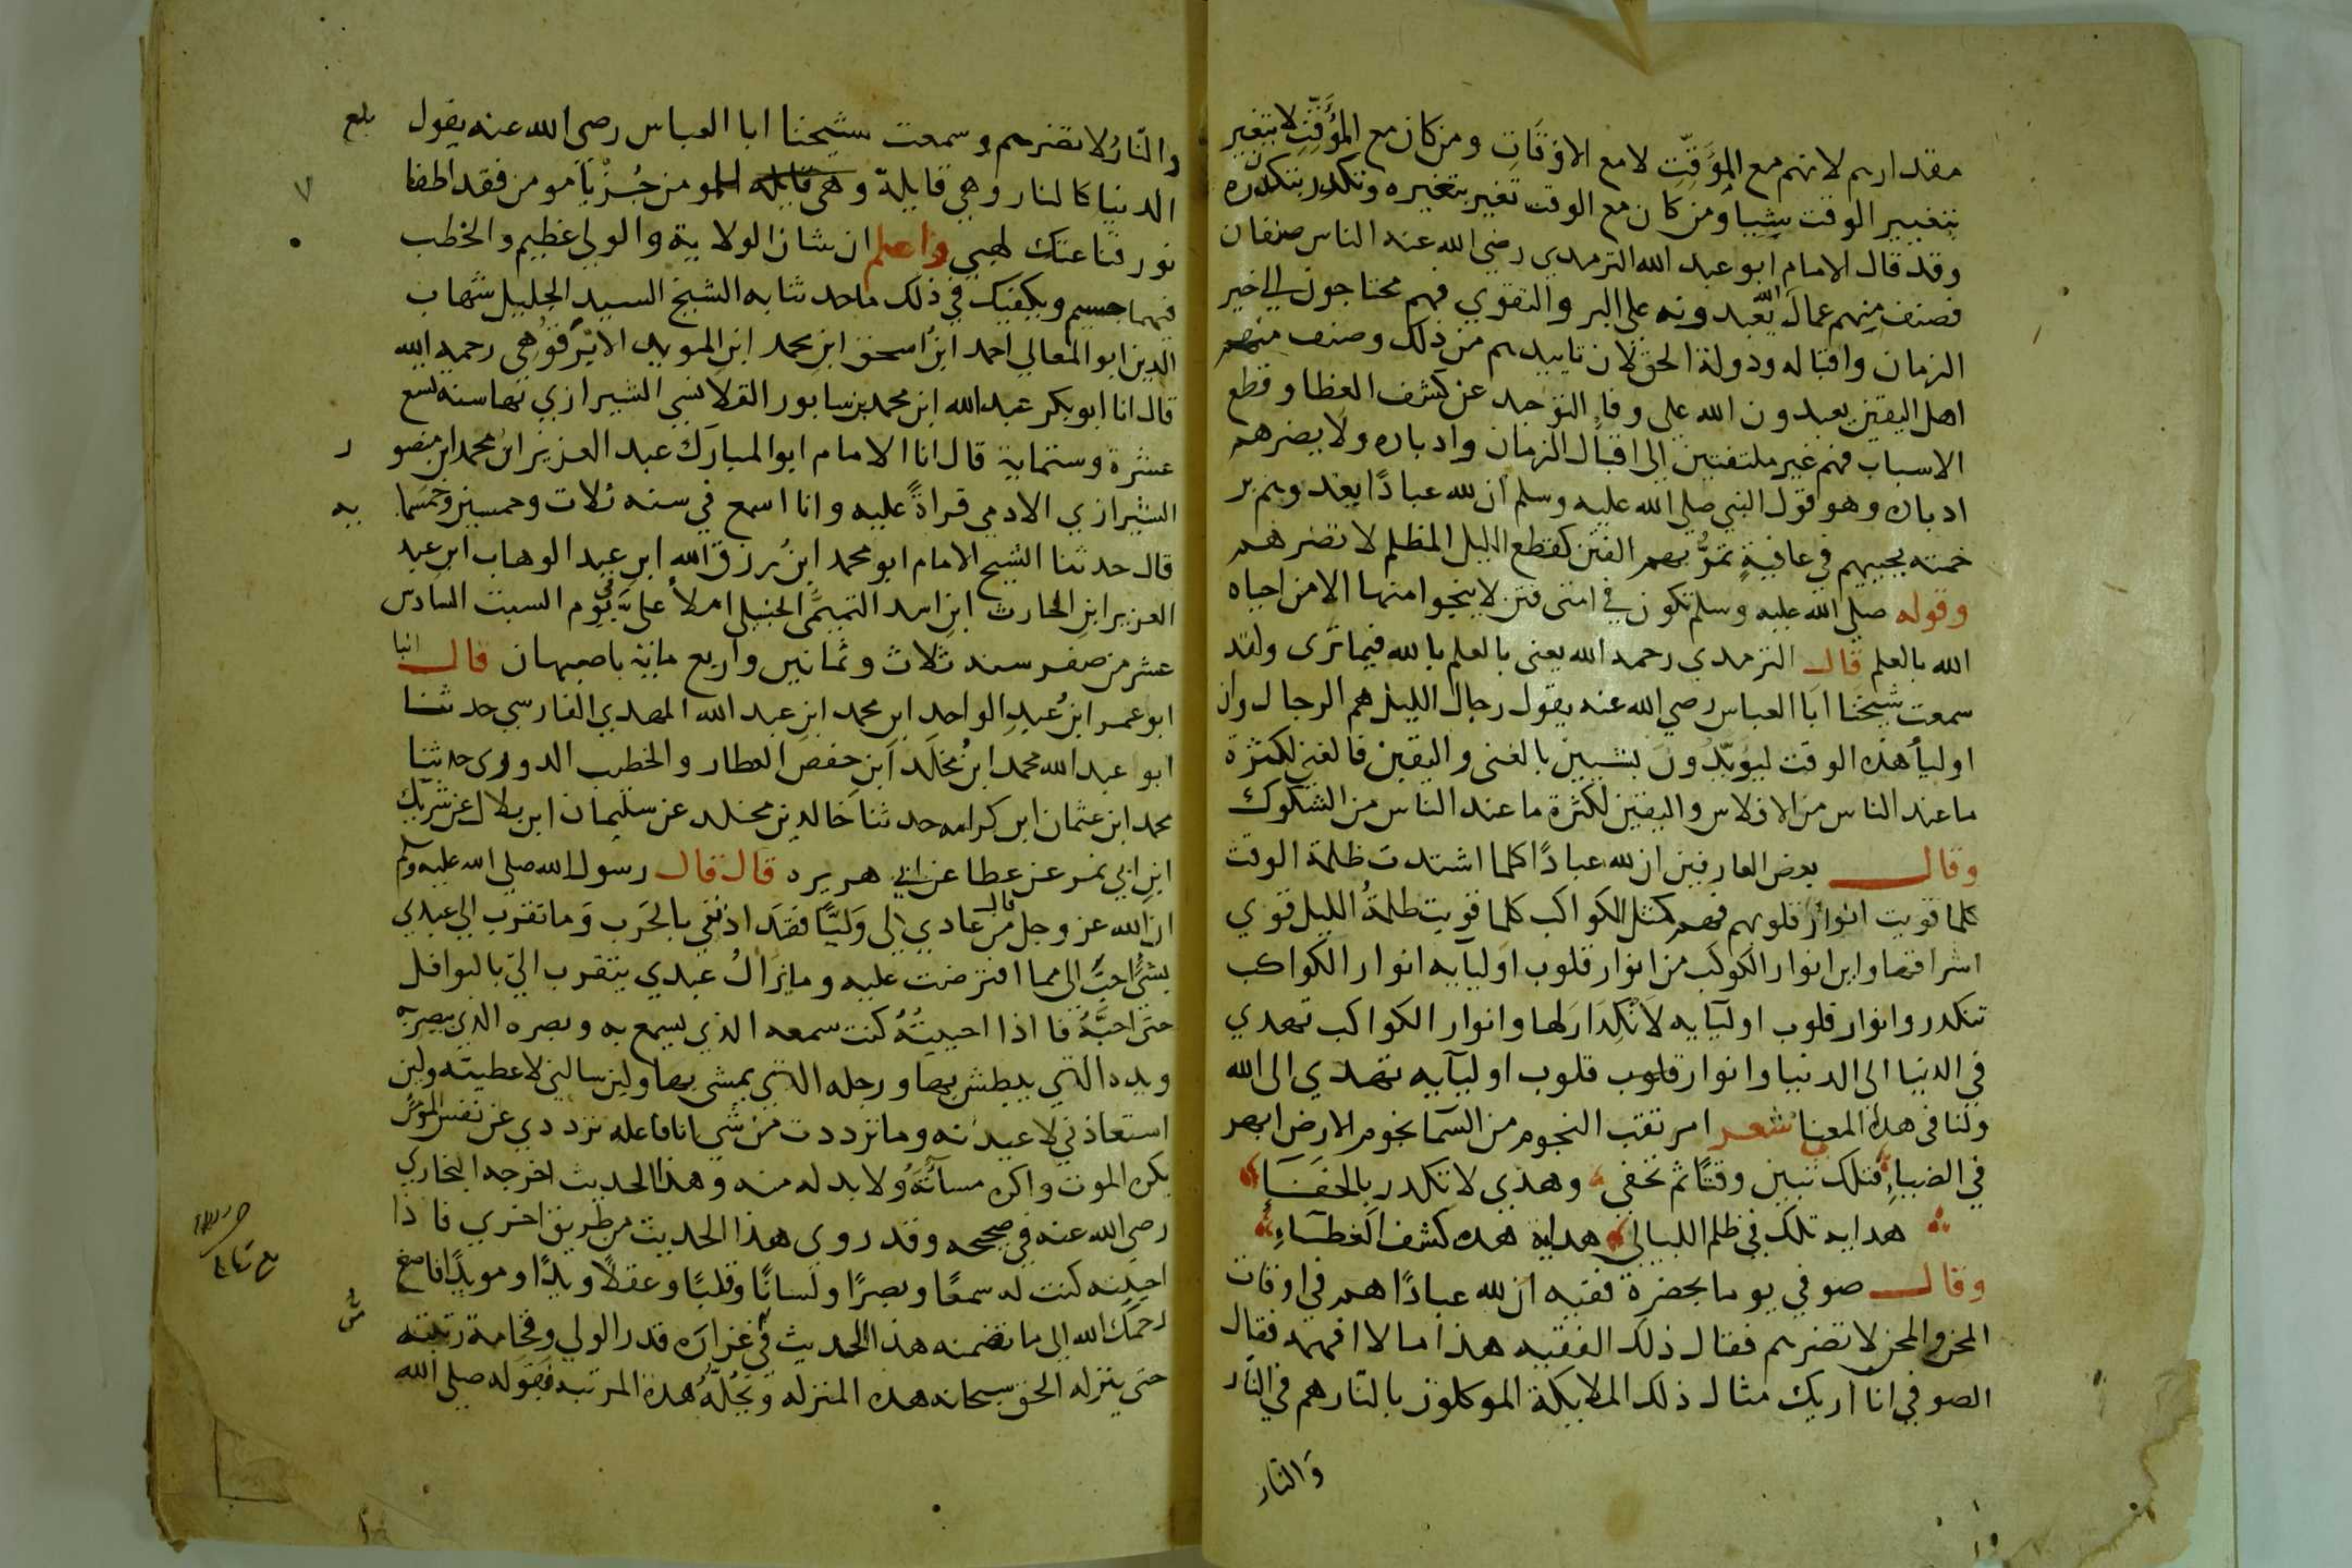 مقدارهم لانهم مع المؤقت لا مع الاوقات ومن كان مع المؤقت لا يتغير
بتغيير الوقت شيا ومن كان مع الوقت تغير بتغيره وتكدر بتكدره
وقد قال الامام ابو عبد الله الترمدي رضي الله عنه الناس صنفان
فصنف منهم عمال الله يعبدونه على البر والتقوي فهم محتاجون الى خير
الزمان واقباله ودولة الحق لان تاييدهم من ذلك وصنف منهم
اهل اليقين يعبدون الله على وفا التوحد عن كشف الغطا وقطع
الاسباب فهم غير ملتفتين الى اقبال الزمان وادباره ولا يضرهم
ادباره وهو قول النبي صلى الله عليه وسلم ان لله عبادًا يغدوهم بر
حمته يحييهم في عافيةٍ تمرُّ بهم الفتن كقطع الليل المظلم لا تضرهم
وقوله صلى الله عليه وسلم تكون في امتى فتن لا ينجوا منها الا من احياه
الله بالعلم قال الترمدي رحمه الله يعنى بالعلم بالله فيما نرى ولقد
سمعت شيخنا ابا العباس رضي الله عنه يقول رجال الليل هم الرجال وان
اوليأ هذه الوقت ليؤيّدون بشيين بالغنى واليقين فالغنى لكثرة
ما عند الناس من الافلاس واليقين لكثرة ما عند الناس من الشكوك
وقال بعض العارفين ان لله عبادًا كلما اشتدت ظلمة الوقت
كلما قويت انوار قلوبهم فهم كمثل الكواكب كلما قويت ظلمةُ الليل قوي
اشراقها واين انوار الكوكب من انوار قلوب اوليايه انوار الكواكب
تنكدر وانوار قلوب اوليايه لا انكدار لها وانوار الكواكب تهدي
في الدنيا الى الدنيا وانوار قلوب قلوب اوليآيه تهدي الى الله
ولنا فى هذا المعنا شعر امرتقب النجوم من السما نجوم الارض ابهر
في الضياءِ فتلك تبين وقتًا ثم تخفى وهذي لا تكدر بالخفاء
هداية تلك في ظلم الليالي هداية هذه كشف الغطاءِ
وقال صوفي يوما بحضرة فقيه ان لله عبادًا هم في اوقات
المحن والمحن لا تضرهم فقال ذلك الفقيه هذا ما لا افهمه فقال
الصوفي انا اريك مثال ذلك الملايكة الموكلون بالنار هم في النار
والنار
والنّارُ لا تضرهم وسمعت شيخنا ابا العباس رضي الله عنه يقول
بلع
الدنيا كالنار وهي قايلة وهي قايله للمومن جُزْ يا مومن فقد اطفا
٧
نور قناعتك لهبي واعلم ان شان الولاية والولي عظيم والخطب
فيهما جسيم ويكفيك في ذلك ما حدثنا به الشيخ السيد الجليل شهاب
الدين ابو المعالي احمد ابن اسحق ابن محمد ابن المويد الابرقوهي رحمه الله
قال انا ابو بكر عبد الله ابن محمد بن سابور القلانسي الشيرازي بها سنه تسع
عشرة وستماية قال انا الامام ابو المبارك عبد العزيز ابن محمد ابن منصو
ر
الشيرازي الادمي قراةً عليه وانا اسمع في سنه ثلاث وخمسين وخمسما
يه
قال حدثنا الشيخ الامام ابو محمد ابن رزق الله ابن عبد الوهاب ابن عبد
العزيز ابن الحارث ابن اسد التميمى الحنبلى املأ على في يوم السبت السادس
عشر من صفر سنه ثلاث وثمانين واربع ماية باصبهان قال انبا
ابو عمر ابن عبد الواحد ابن محمد ابن عبد الله المهدي الفارسي حدثنا
ابو عبد الله محمد ابن مخلد ابن حفص العطار والخطيب الدورى حدثنا
محمد ابن عثمان ابن كرامه حدثنا خالد بن مخلد عن سليمان ابن بلال عن شريك
ابن ابي نمر عن عطا عن ابي هريره قال قال رسول الله صلى الله عليه وسلم
ان الله عز وجل قال من عادي لى وليًا فقد اذنني بالحرب وما تقرب الى عبدي
بشئ احبَّ الى مما افترضت عليه وما يزالُ عبدي يتقرب اليّ بالنوافل
حتى احبَّهُ فاذا احببتُهُ كنت سمعه الذي يسمع به وبصره الذي يبصر به
ويده التي يبطش بها ورجله التي يمشى بها ولين سالنى لاعطيته ولين
استعاذني لاعيدنه وما ترددت من شي انا فاعله ترددي عن نفس المؤمن
يكره الموت واكره مسآتَهُ ولا بد له منه وهذا الحديث اخرجه البخاري
رضي الله عنه في صحيحه وقد روى هذا الحديث من طريق اخري فاذا
احببته كنت له سمعًا وبصرًا ولسانًا وقلبًا وعقلًا ويدًا ومويدًا فاصغ
رحمك الله الى ما تضمنه هذا الحديث في غزاره قدر الولي وفخامة رتبته
حتى ينزله الحق سبحانه هذه المنزله ويحلّهُ هذة المرتبه فقوله صلى الله